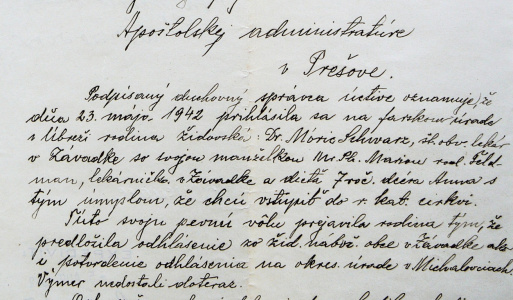 Apoštolskej administratúre
v Prešove.
Podpísaný duchovný správca úctive oznamuje, že
dňa 23. mája 1942 prihlásila sa na farskom úrade
v Úbreži rodina židovská: Dr. Móric Schwarz, št. obv. lekár
v Závadke so svojou manželkou Mr. Ph. Máriou rod. Feld-
man, lekárnička v Zavadke a dieťa 7 roč. dcéra Anna s
tým úmyslom, že chcú vstúpiť do r. kat. cirkvi.
Túto svoju pevnú vôľu prejavila rodina tým, že
predložila odhlásenie zo žid. nábož. obce v Závadke ako
i potvrdenie odhlásenia na okres. úrade v Michalovciach.
Výmer nedostali doteraz.